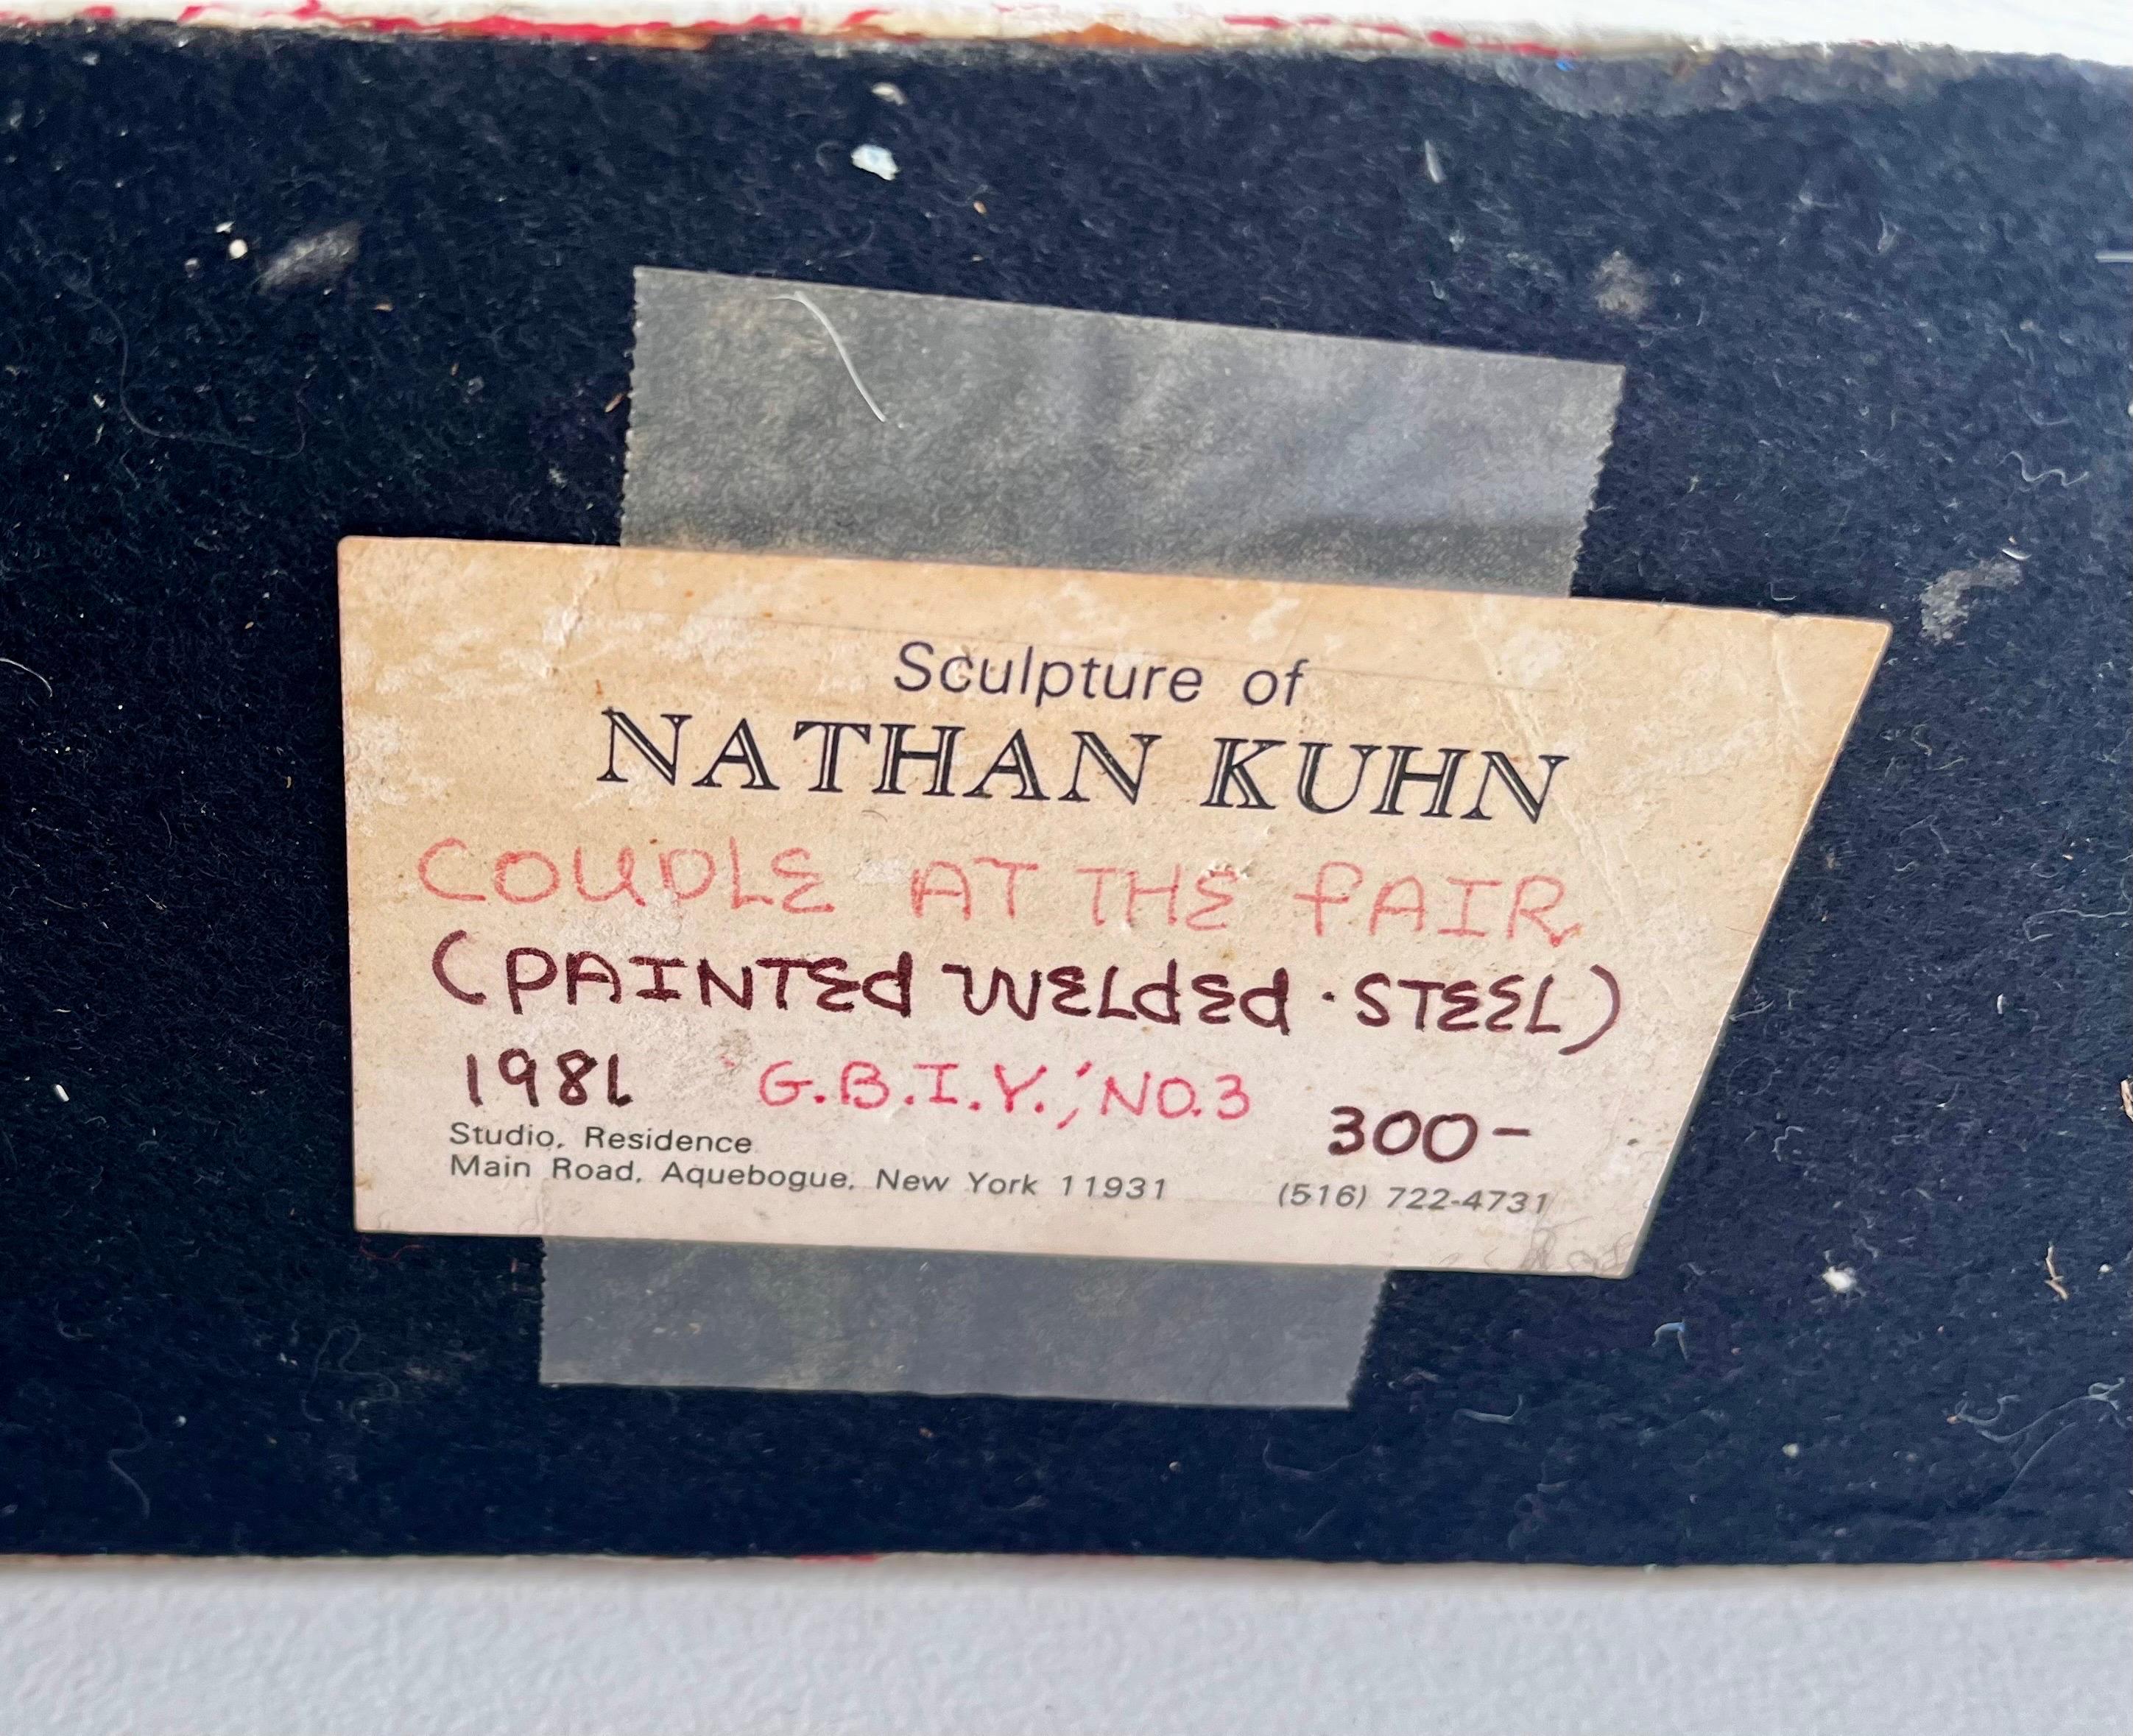 Sculpture of
NATHAN KUHN
COUPLE AT THE fAIR
(PAINTEd WELdEd · STEEL)
1981 G.B.I.Y.; NO.3 300-
Studio, Residence
Main Road, Aquebogue, New York 11931 (516) 722-4731